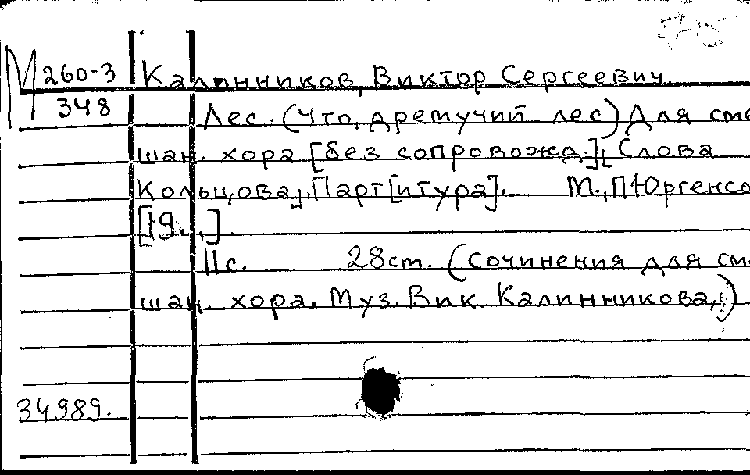 М 260-3 Калинников, Виктор Сергеевич
348 Лес. (Что, дремучий лес) Для сме-
шан. хора [без сопровожд.], Слова
Кольцова, Парт[итура]. М., П. Юргенсо
[19..].
11 с. 28 ст. (Сочинения для сме-
шан. хора. Муз. Вик. Калинникова,)
34989.